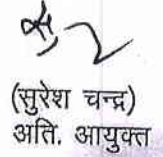 (सुरेश चन्द्र)
अति. आयुक्त